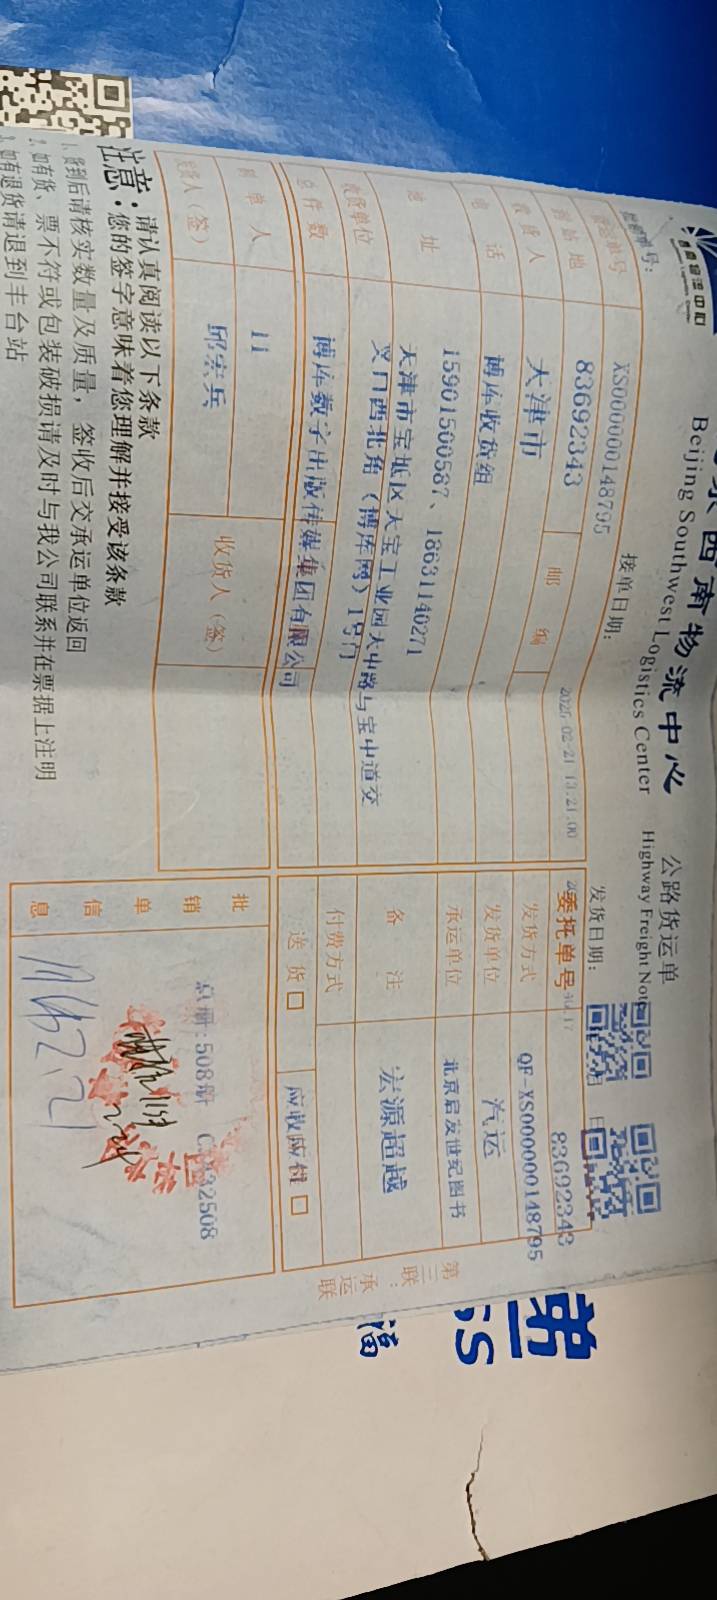 西南物流中心
Beijing Southwest Logistics Center
公路货运单
Highway Freight Note
西南物流中心
接单日期:
2025-02-21 13:21:00
发货日期:
XS000000148795
83692343
邮 编
委托单号
83692343
天津市
发货方式
QF-XS000000148795
收货人
博库收货组
发货单位
汽运
电 话
15901500587、18631140271
承运单位
北京启发世纪图书
地 址
天津市宝坻区天宝工业园天中路与宝中道交
叉口西北角(博库网)1号门
备 注
宏源超越
收货单位
博库数字出版传媒集团有限公司
付费方式
总件数
11
送 货 □
应收应付 □
制单人
邱宏兵
发货人(签)
收货人(签)
批 销 单 信 息
总册:508册
2.21
第三联:承运联
注意:
请认真阅读以下条款
您的签字意味着您理解并接受该条款
1、货到后请核实数量及质量,签收后交承运单位返回
2、如有货、票不符或包装破损请及时与我公司联系并在票据上注明
3、如有退货请退到丰台站